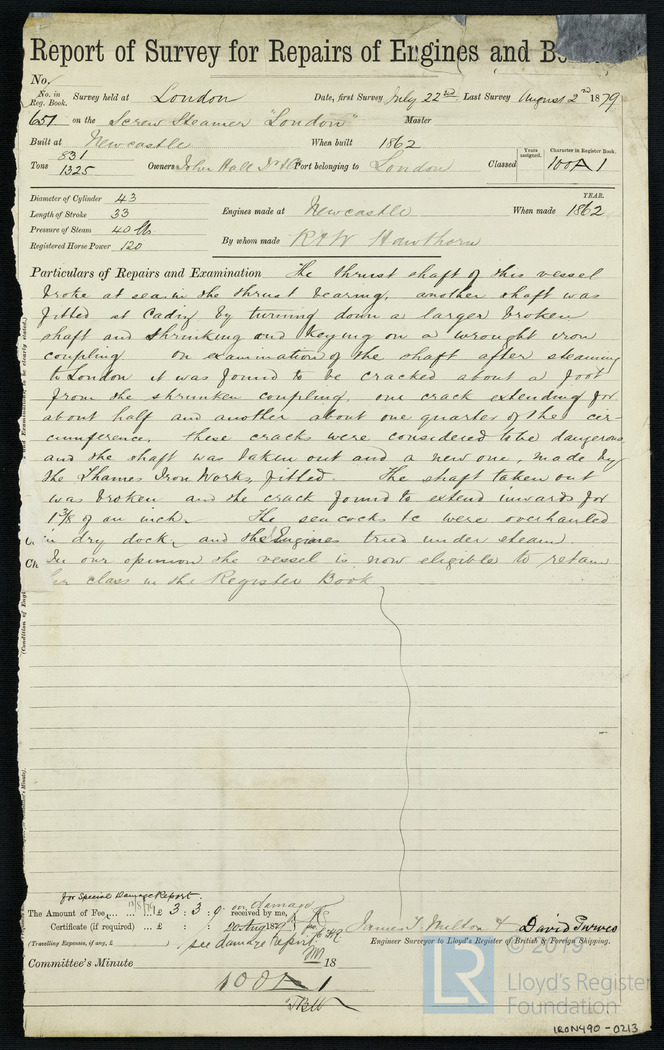 Report of Survey for Repairs of Engines and Bo
No.
No. in Reg. Book. Survey held at London Date, first Survey July 22nd Last Survey August 2nd 1879
651 on the Screw Steamer "London" Master
Built at Newcastle When built 1862 Years assigned. Character in Register Book.
Tons 831 1325 Owners John Hall Jr & Co Port belonging to London Classed 100A1
Diameter of Cylinder 43 YEAR.
Length of Stroke 33 Engines made at Newcastle When made 1862
Pressure of Steam 40 lbs
Registered Horse Power 120 By whom made R & W Hawthorn
Particulars of Repairs and Examination The thrust shaft of this vessel
broke at sea in the thrust bearing, another shaft was
fitted at Cadiz by turning down a larger broken
shaft and shrinking and keying on a wrought iron
coupling On examination of the shaft after steaming
to London it was found to be cracked about a foot
from the shrunken coupling, one crack extending for
about half and another about one quarter of the cir-
cumference. These cracks were considered to be dangerous
and the shaft was taken out and a new one, made by
the Thames Iron Works, fitted. The shaft taken out
was broken and the crack found to extend inwards for
1 3/8 of an inch. The sea cocks &c were overhauled
in dry dock, and the Engines tried under steam
In our opinion the vessel is now eligible to retain
her class in the Register Book
for Special Damage Report.
The Amount of Fee £ 3 : 3 : 0 received by me,
on damage
Certificate (if required) ... £ : : 20 Aug 187
(Travelling Expenses, if any, £ ) see damage report
James T. Milton & David Purves
Engineer Surveyor to Lloyd's Register of British & Foreign Shipping.
18
Committee's Minute
100A1
© 2019
LR Lloyd's Register
Foundation
IRON490-0213